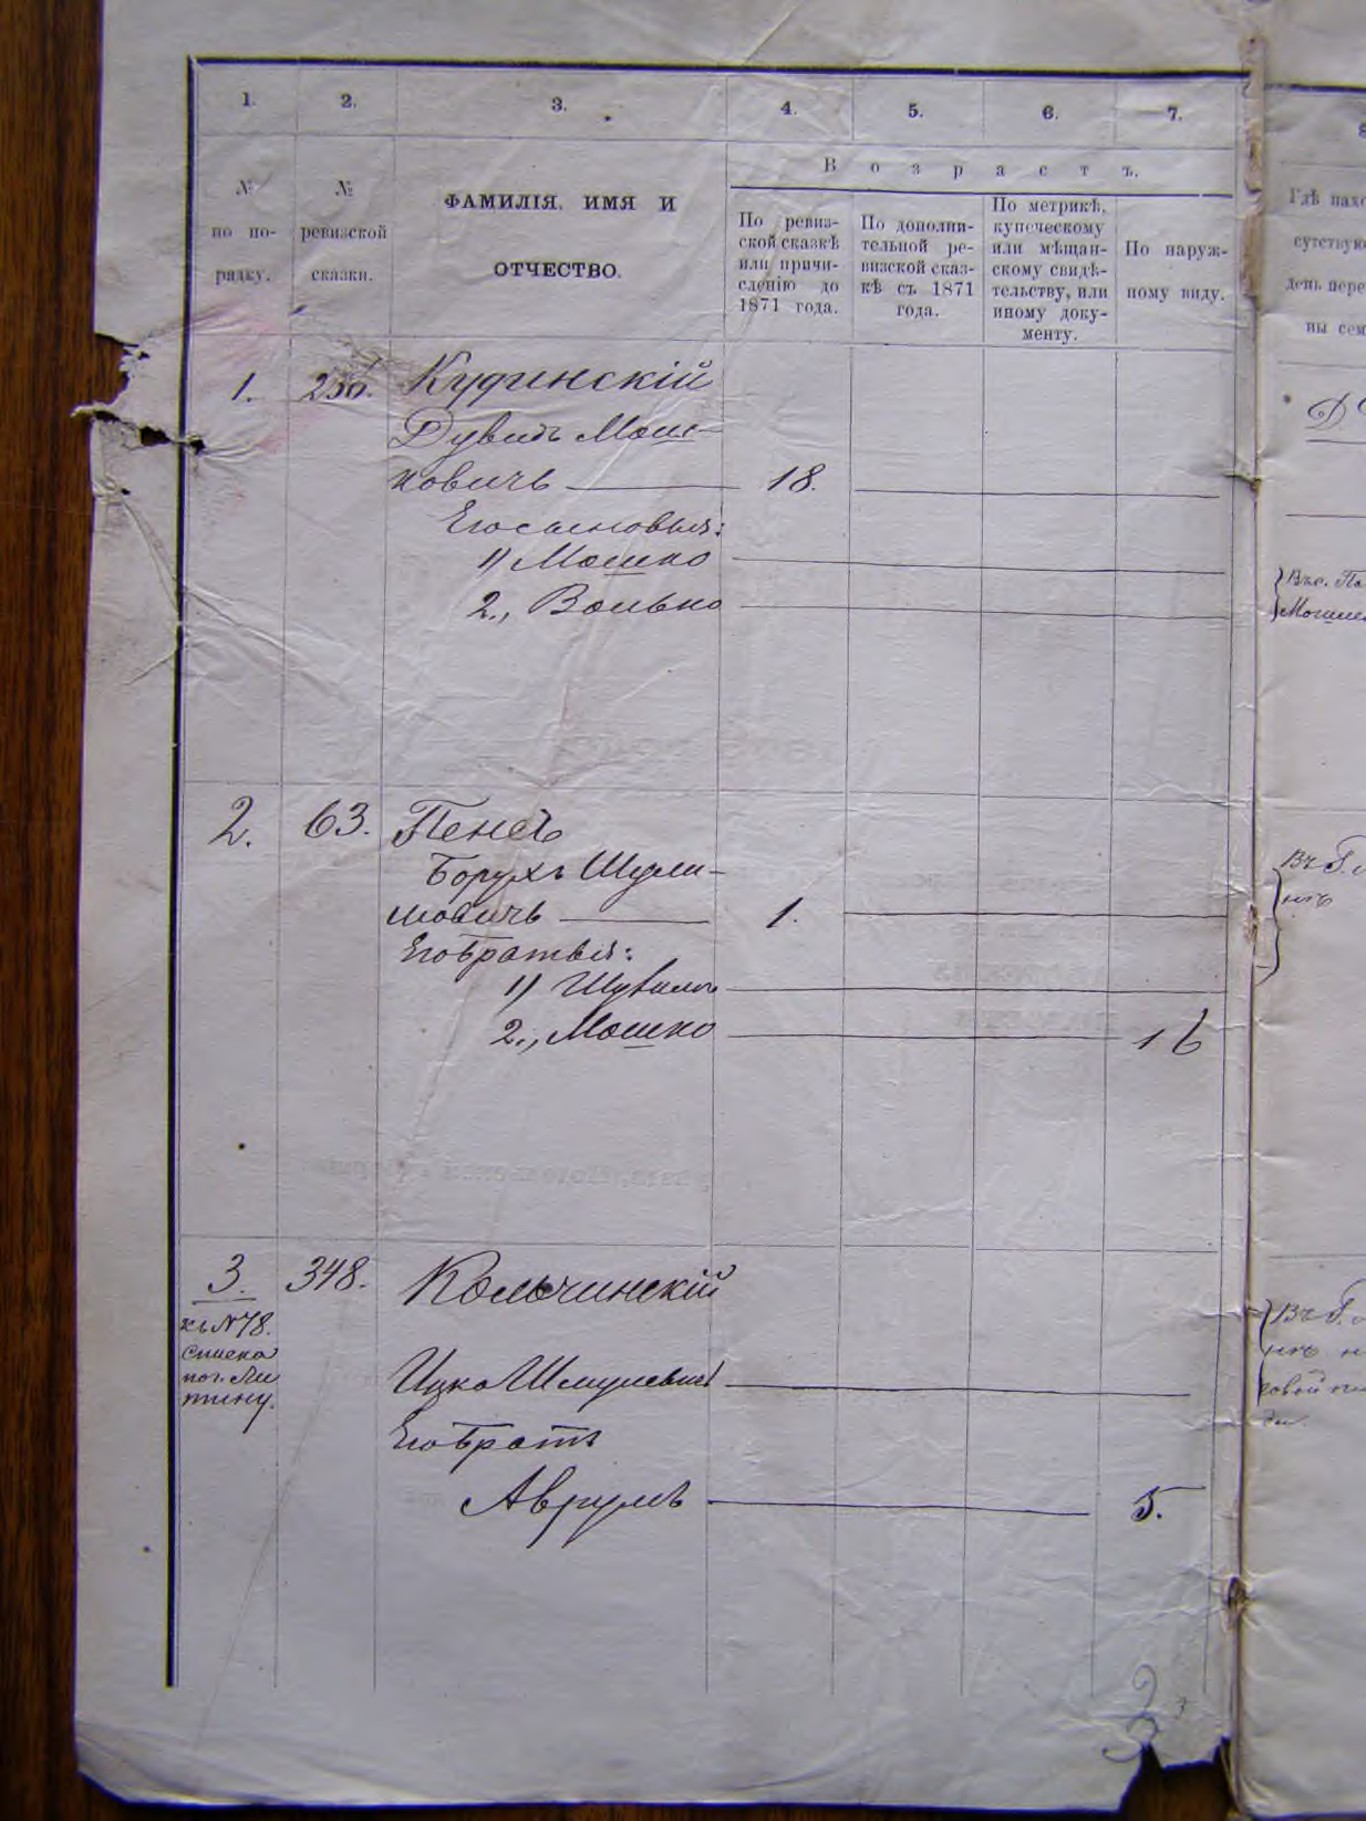 1.
2.
3.
4.
5.
6.
7.
№
по по-
рядку.
№
ревизской
сказки.
ФАМИЛІЯ, ИМЯ И
ОТЧЕСТВО.
Возрастъ.
По ревиз-
ской сказкѣ
или причи-
сленію до
1871 года.
По дополни-
тельной ре-
визской сказ-
кѣ съ 1871
года.
По метрикѣ,
купеческому
или мѣщан-
скому свидѣ-
тельству, или
иному доку-
менту.
По наруж-
ному виду.
1.
Кудинскій
Дувидъ Мош-
ковичъ 18.
Его сыновья:
1) Мошко
2., Волько
2. 63. Пенсъ
Борухъ Шули-
мовичъ 1.
Его братья:
1)
2., Мошко 16
3. 348. Кольчинскій
къ №78.
Списка
по г. Ли
тину.
Ицко Шмулевичъ
Его братъ
Аврумъ 5.
3
Гдѣ нахо
сутствую
день пере
ны сем
Въ с.
Могилев
Въ Г.
Въ Г.